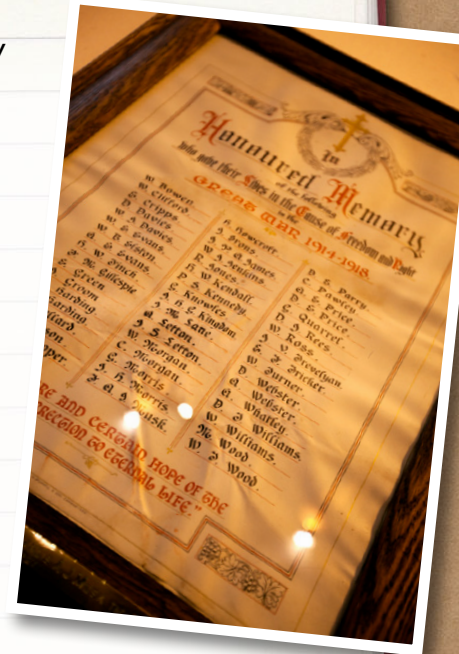 To
Honoured Memory
of the following
who gave their Lives in the Cause of Freedom and Right
in the
GREAT WAR 1914-1918
W. Bowen.
W. Clifford.
E. Cripps.
Davies.
W. A. Davies.
W. G. Evans.
Evans.
W. Finch.
Gillespie
Green
Groom
Harding
Harding.
Howcroft.
J. Ivons.
W. G. James.
J. Jenkins.
R. Jones.
W. Kendall.
S. Kennedy.
C. Knowles.
Kingdom
Lane.
Letton.
S. Letton
W. Morgan.
C. Morgan.
Morris.
Morris.
D. E. Parry.
C. Pawley.
D. L. Price.
E. Price.
C. Quarrel.
W. J. Rees.
Ross.
Trevelyan.
F. Tricker.
W. Turner.
D. Webster.
Webster.
A. Whatley.
D. J. Williams.
W. Williams.
M. Wood.
W. J. Wood.
AND CERTAIN HOPE OF THE
TO ETERNAL LIFE."